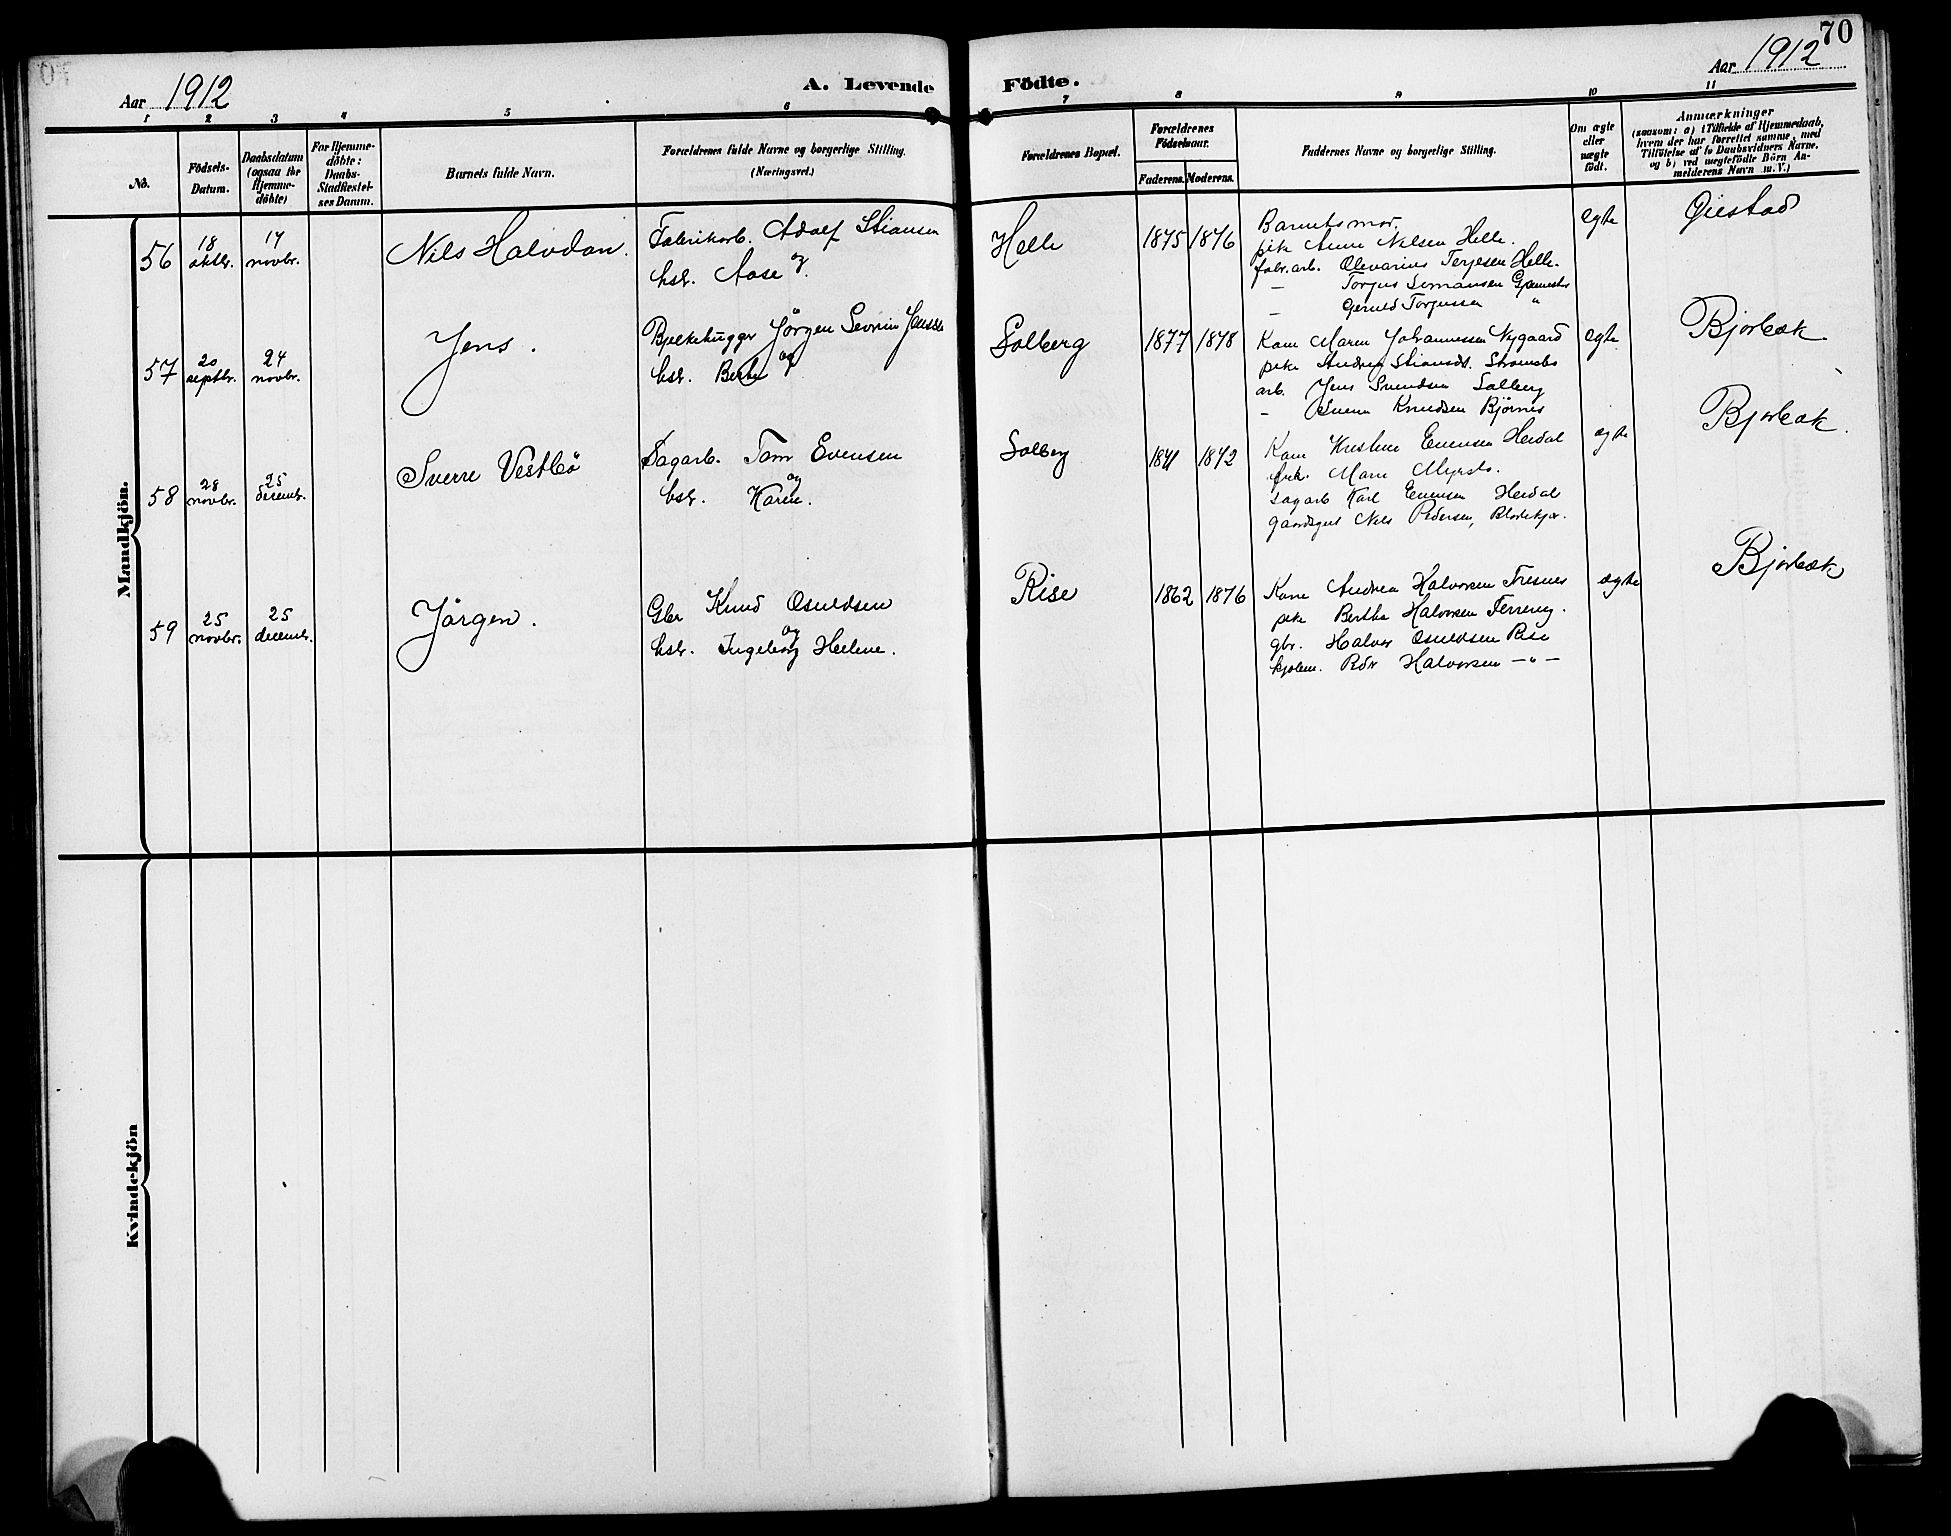 70
Aar 1912
A. Levende Födte.
Aar 1912
1 2 3 4 5 6 7 8 9 10 11
No.
Födsels-
Datum.
Daabsdatum
(ogsaa for
Hjemme-
döbte)
For Hjemme-
döbte:
Daabs-
Stadfæstel-
ses Datum.
Barnets fulde Navn.
Forældrenes fulde Navne og borgerlige Stilling.
(Næringsvei.)
Forældrenes Bopæl.
Forældrenes
Födselsaar.
Faderens. Moderens.
Faddernes Navne og borgerlige Stilling.
Om ægte
eller
uægte
födt.
Anmærkninger
(saasom: a) i Tilfælde af Hjemmedaab,
hvem der har forrettet samme, med
Tilföielse af to Daabsvidners Navne,
og b) ved uægtefödte Börn An-
melderens Navn m. V.)
Mandkjön.
56
18
oktbr.
17
novbr.
Nils Halvdan.
Fabrikarb. Adolf Stiansen
og
hst. Aase.
Helle
1875 1876
Barnets mor.
pike Anne Nilsen Helle.
fabr. arb. Olevarius Terjesen Helle.
– Torjus Simonsen
– Torjussen "
egte
Øiestad
57
20
septbr.
24
novbr.
Jens.
Bjelkehugger Jörgen Severin Jenssen
og
hst. Berte
Solberg
1877 1878
Kone Maren Johannessen Nygaard
pike Andrea Stiansdt. Strømsbo
arb. Jens Svendsen Solberg
– Knudsen Bjørnes
egte
Bjorbæk
58
28
novbr.
25
decembr.
Sverre Vestbö
Sagarb. Tom Evensen
og
hst. Karen.
Solberg
1871 1872
Kone Kristine Evensen Heidal
frk. Marie
sagarb Karl Evensen Heidal
gaardsgut Nils Pedersen,
egte
Bjorbæk.
59
25
novbr.
25
decembr.
Jörgen.
Gbr Knud Osuldsen
og
hst. Ingeborg Helene.
Rise
1862 1876
Kone Andrea Halvorsen Tresnes
pike Berthe Halvorsen
gbr. Halvor Osuldsen Rise
Peder Halvorsen – " –
ægte
Bjorbæk
Kvindekjön